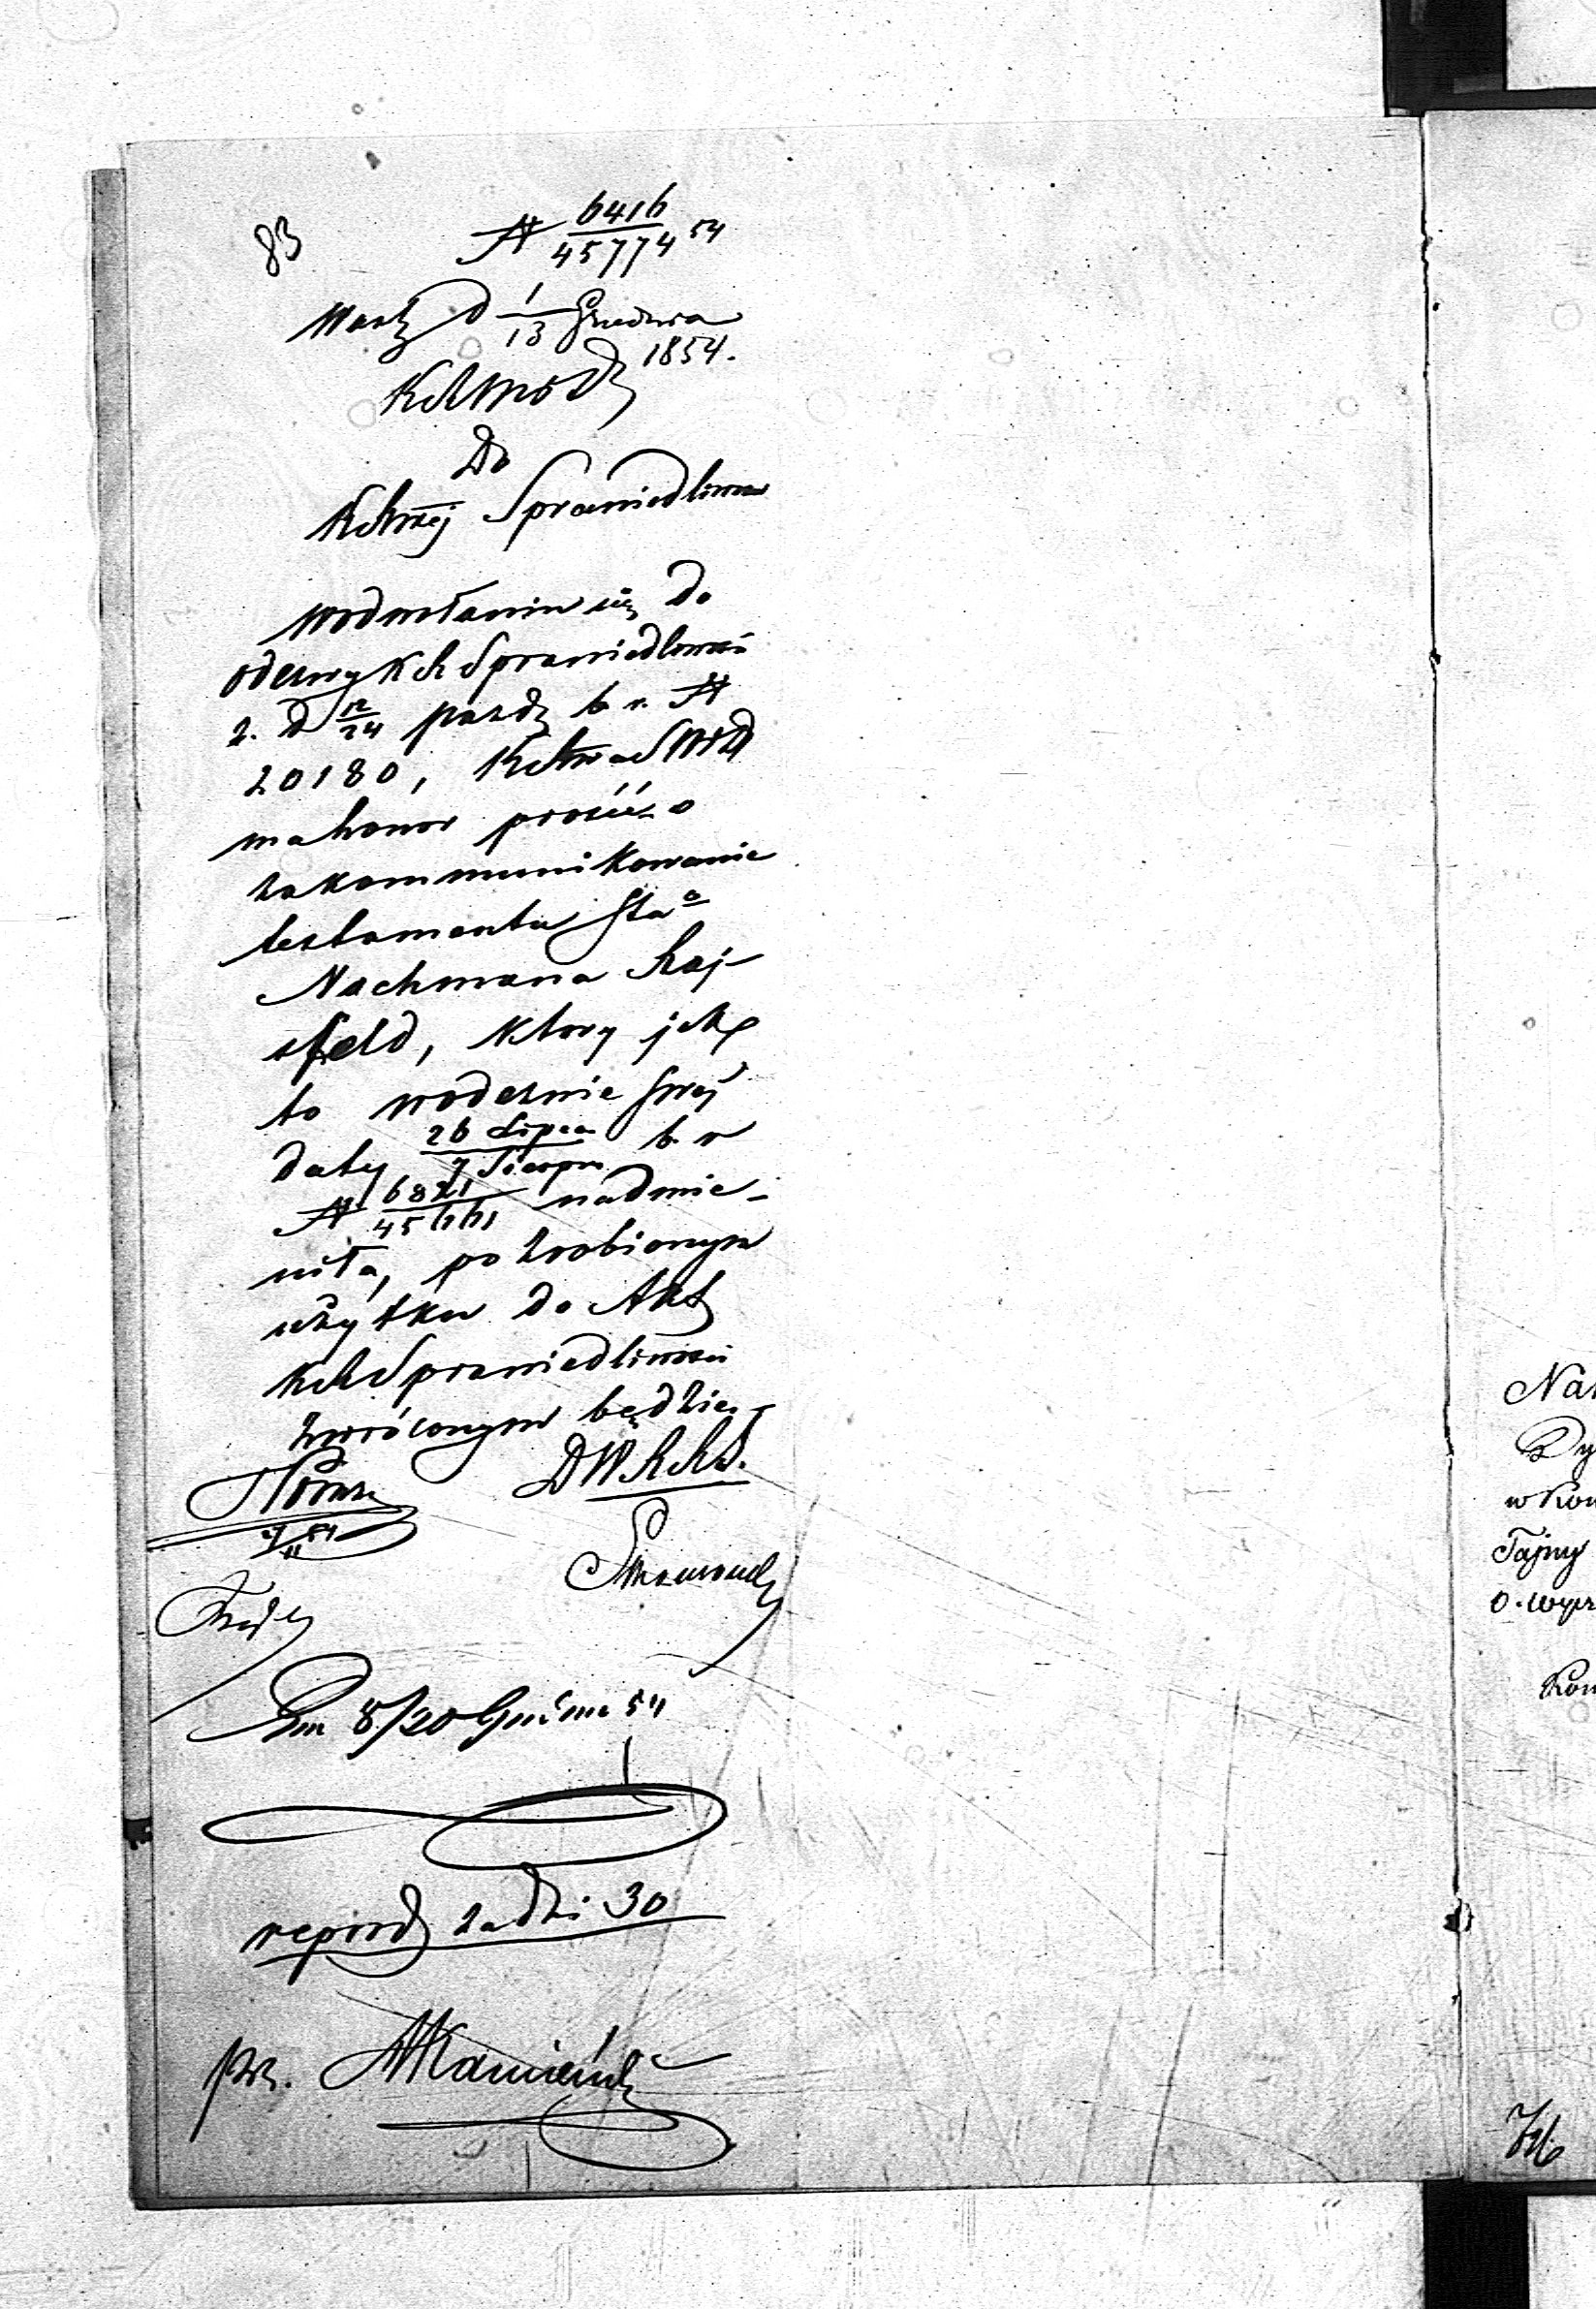 83
N 6416/45774 54
Warsz d 1/13 Grudnia
1854.
KRSWiD
Do
KRządowej Sprawiedliwo
W odwołaniu się do
odezwy KR Sprawiedliwości
z. d 12/24 pazdz b. r. N
20180, KRządowa SWiD
ma honor prosić o
zakommunikowanie
testamentu Sta
Nachmana Raj-
sfeld, ktory jak
to w odezwie swej
daty 26 Lipca/7 Sierpn b. r
N 6821/45661 nadmie-
niła, po zrobionym
użytku do Akt
KR Sprawiedliwosci
zwróconym będzie.
DWRRS.
7/11 54
8/20 Grudnia 54
reprod za dni 30
prz. Kamieński
Na
Dy
w Kom
Tajny
o. wyz
Kom